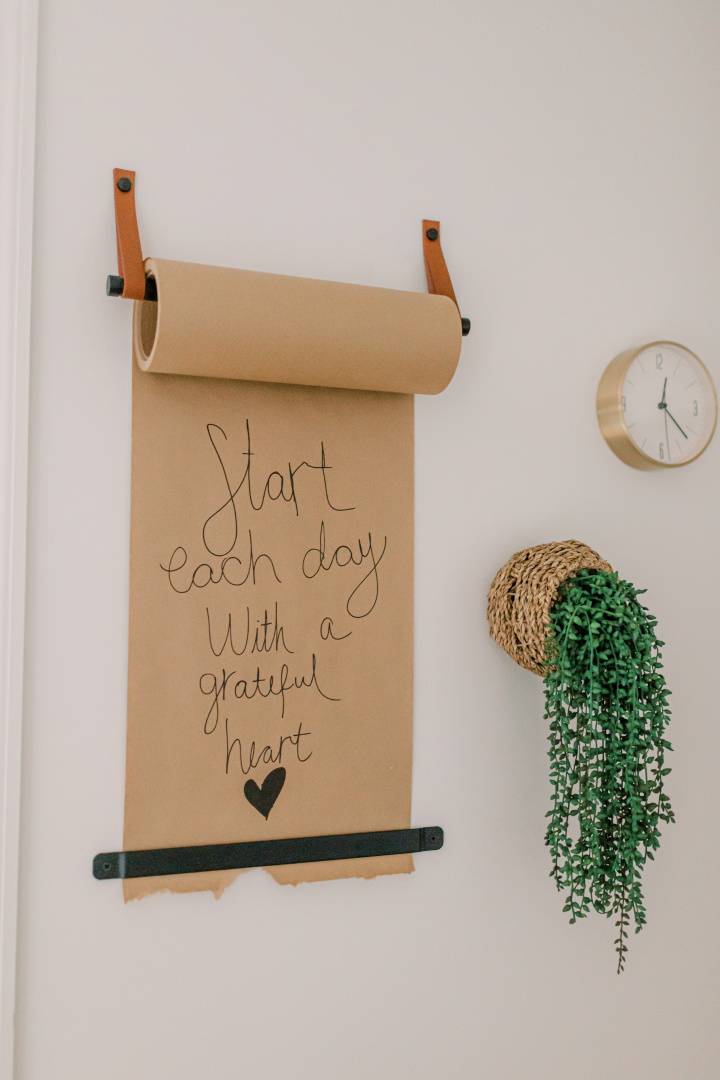 Start
each day
With a
grateful
heart
12
3
6